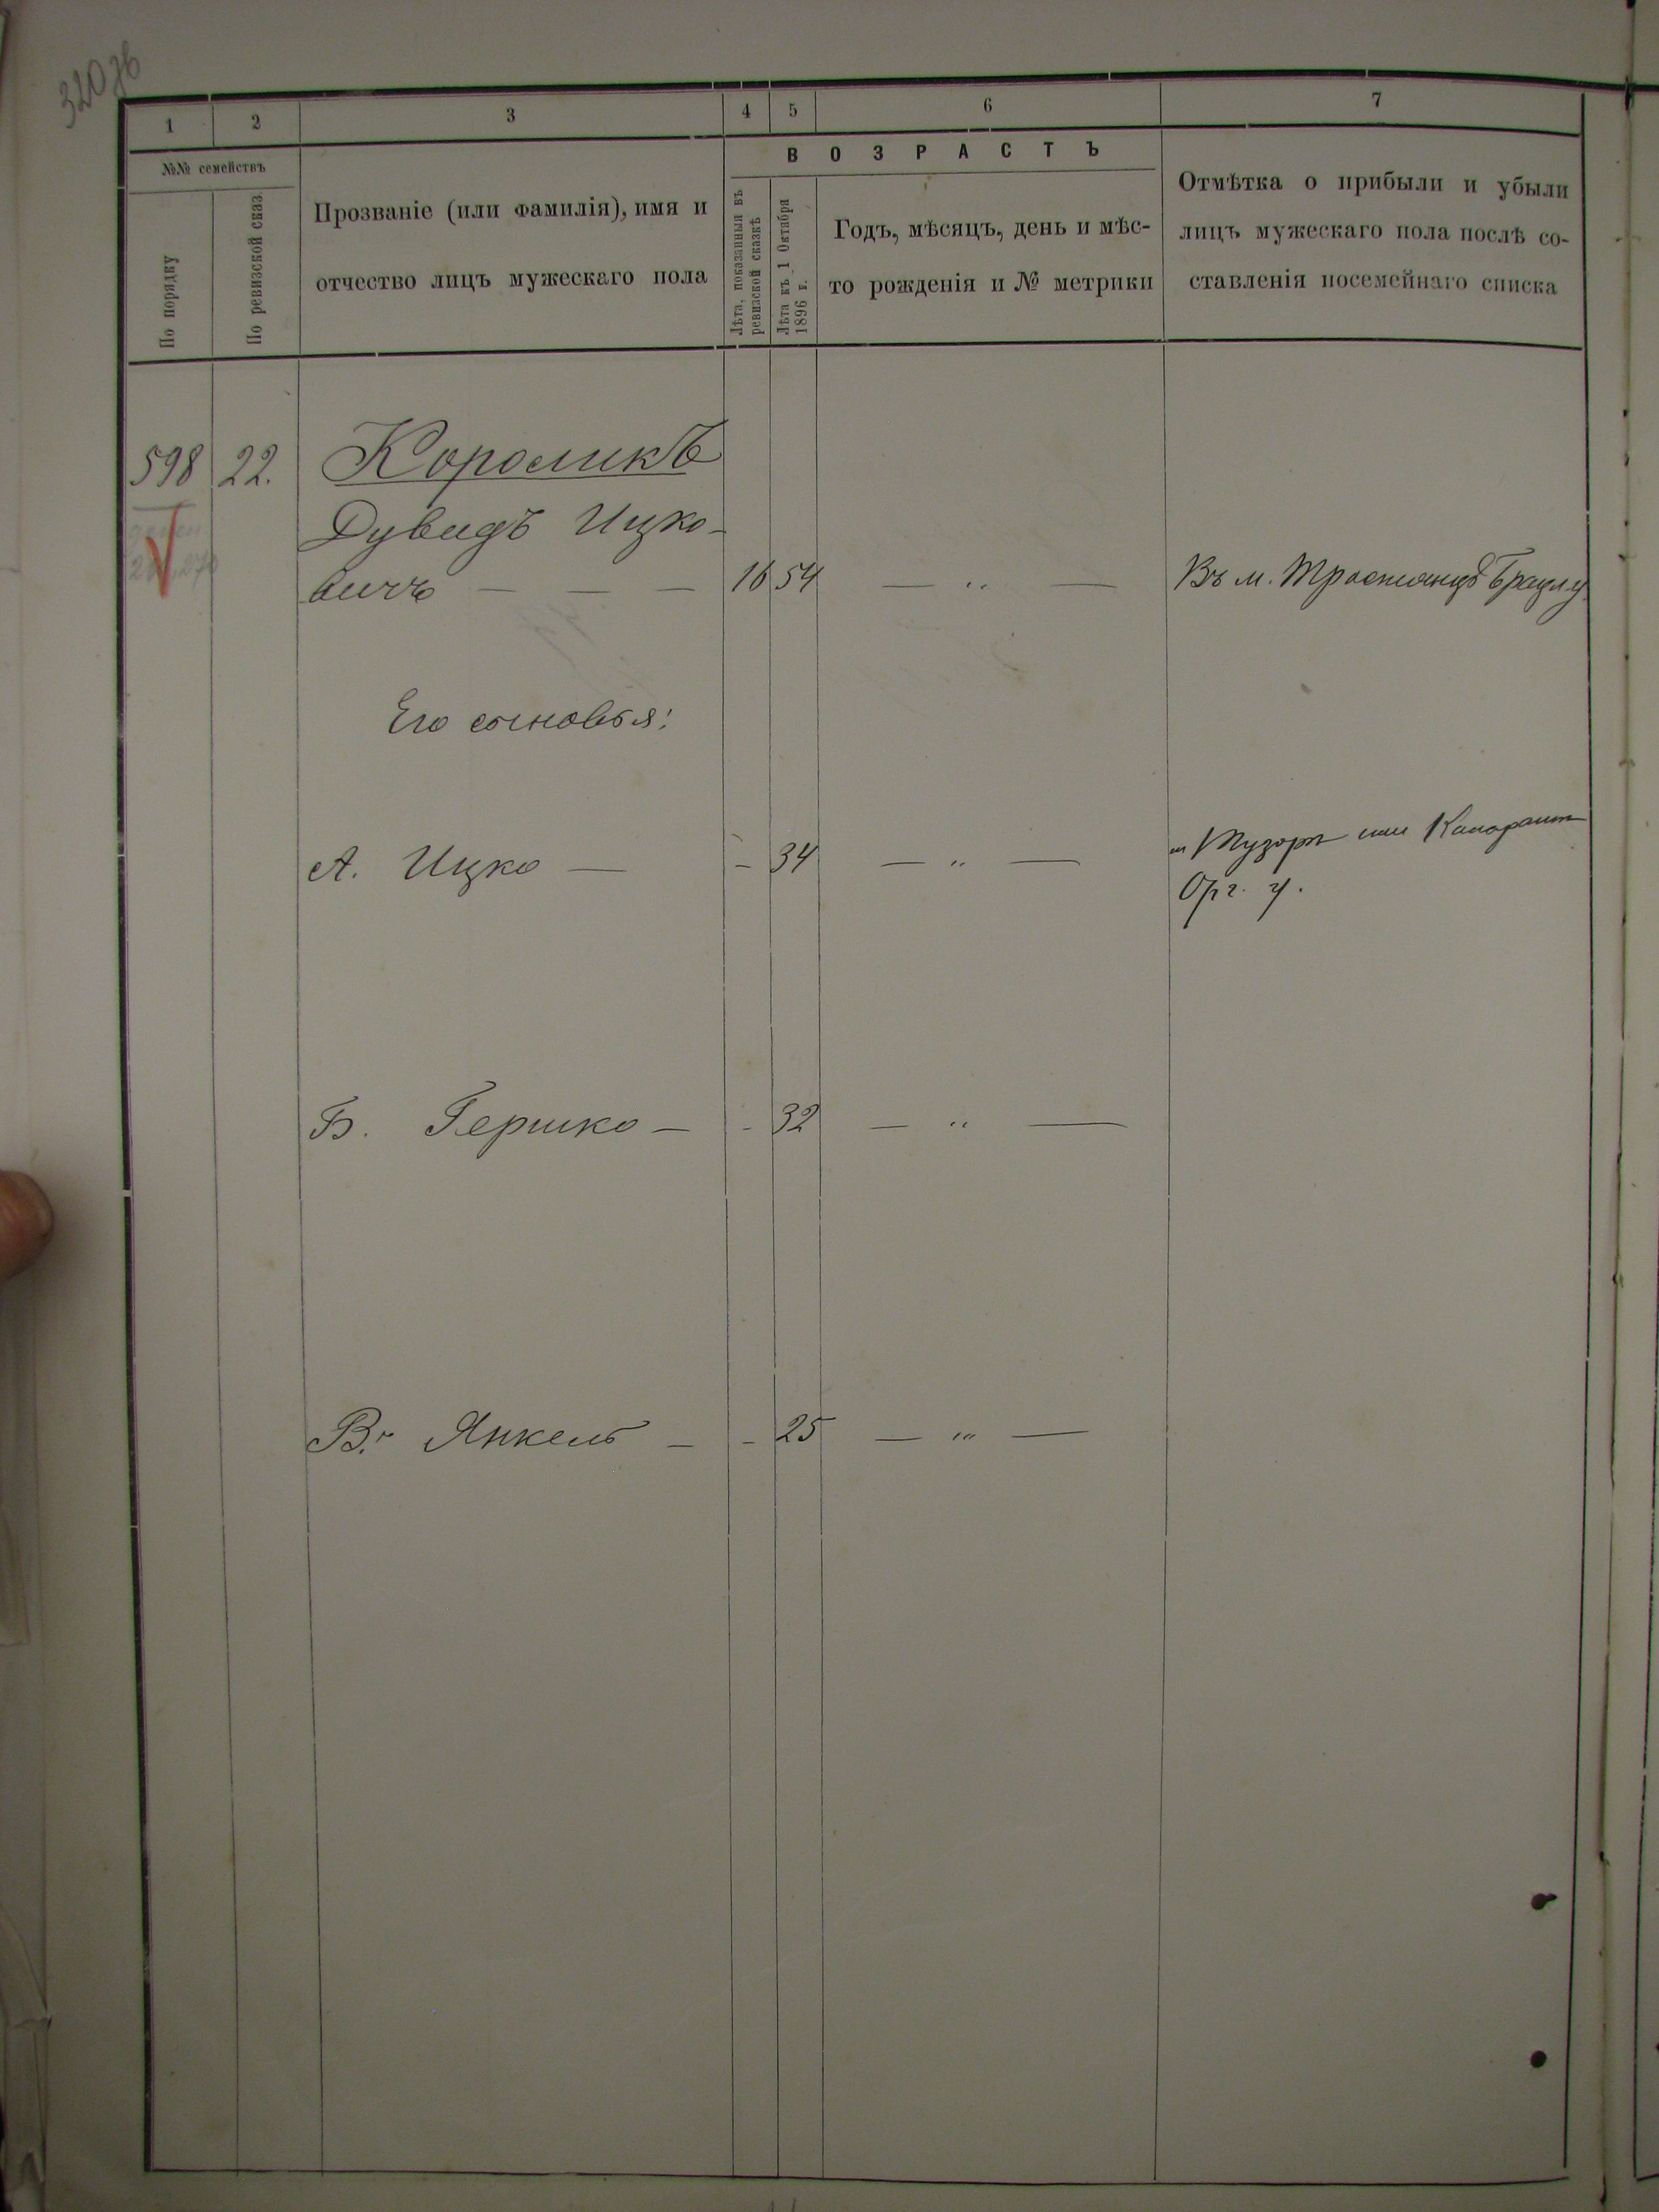 320 об
1 2 3 4 5 6 7
№№ семействъ
По порядку
По ревизской сказ.
Прозваніе (или фамилія), имя и
отчество лицъ мужескаго пола
ВОЗРАСТЪ
Лѣта, показанныя въ
ревизской сказкѣ
Лѣта къ 1 Октября
1896 г.
Годъ, мѣсяцъ, день и мѣс-
то рожденія и № метрики
Отмѣтка о прибыли и убыли
лицъ мужескаго пола послѣ со-
ставленія посемейнаго списка
598 22. Короликъ
Дувидъ Ицко-
вичъ — — — 16 54 — „ — Въ м. Тростянцѣ Брацл. у.
Его сыновья:
А. Ицко — - 34 — „ —
Орг. у.
Б. Гершко — - 32 — „ —
В. Янкель — - 25 — „ —